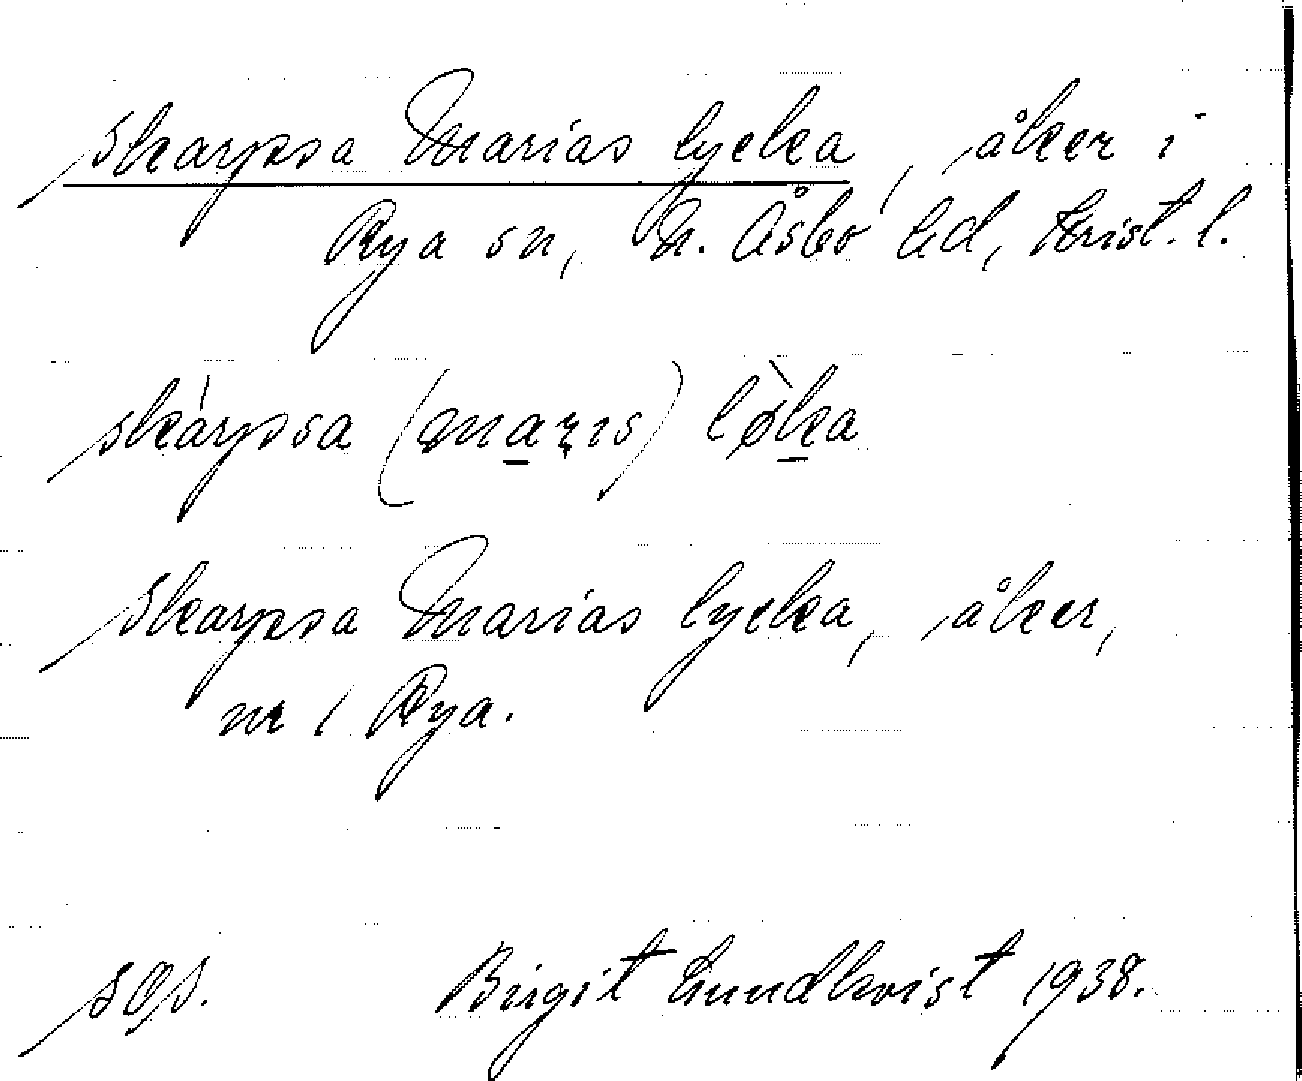 Skarpsa Marias lycka, åker i
Rya sn, N. Åsbo hd, Krist. l.
skarpsa (maris) løka
Skarpsa Marias lycka, åker,
nr 1 Rya.
sgs. Birgit Lundkvist 1938.